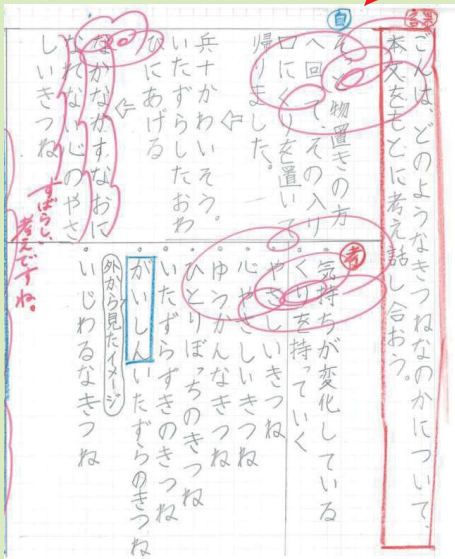 ごんは、どのようなきつねなのかについて、
本文をもとに考え話し合おう。
自
物置きの方
へ回って、その入り
口にくりを置いて
帰りました。
⇦
兵十かわいそう。
いたずらしたおわ
びにあげる
⇦
なかなかすなおに
なれないじのやさ
しいきつね
すばらしい
考えですね。
考
・気持ちが変化している
・くりを持っていく
・やさしいきつね
・心やさしいきつね
・ゆうかんなきつね
・ひとりぼっちのきつね
・いたずらずきのきつね
・がいしんいたずらのきつね
外から見たイメージ
・いじわるなきつね